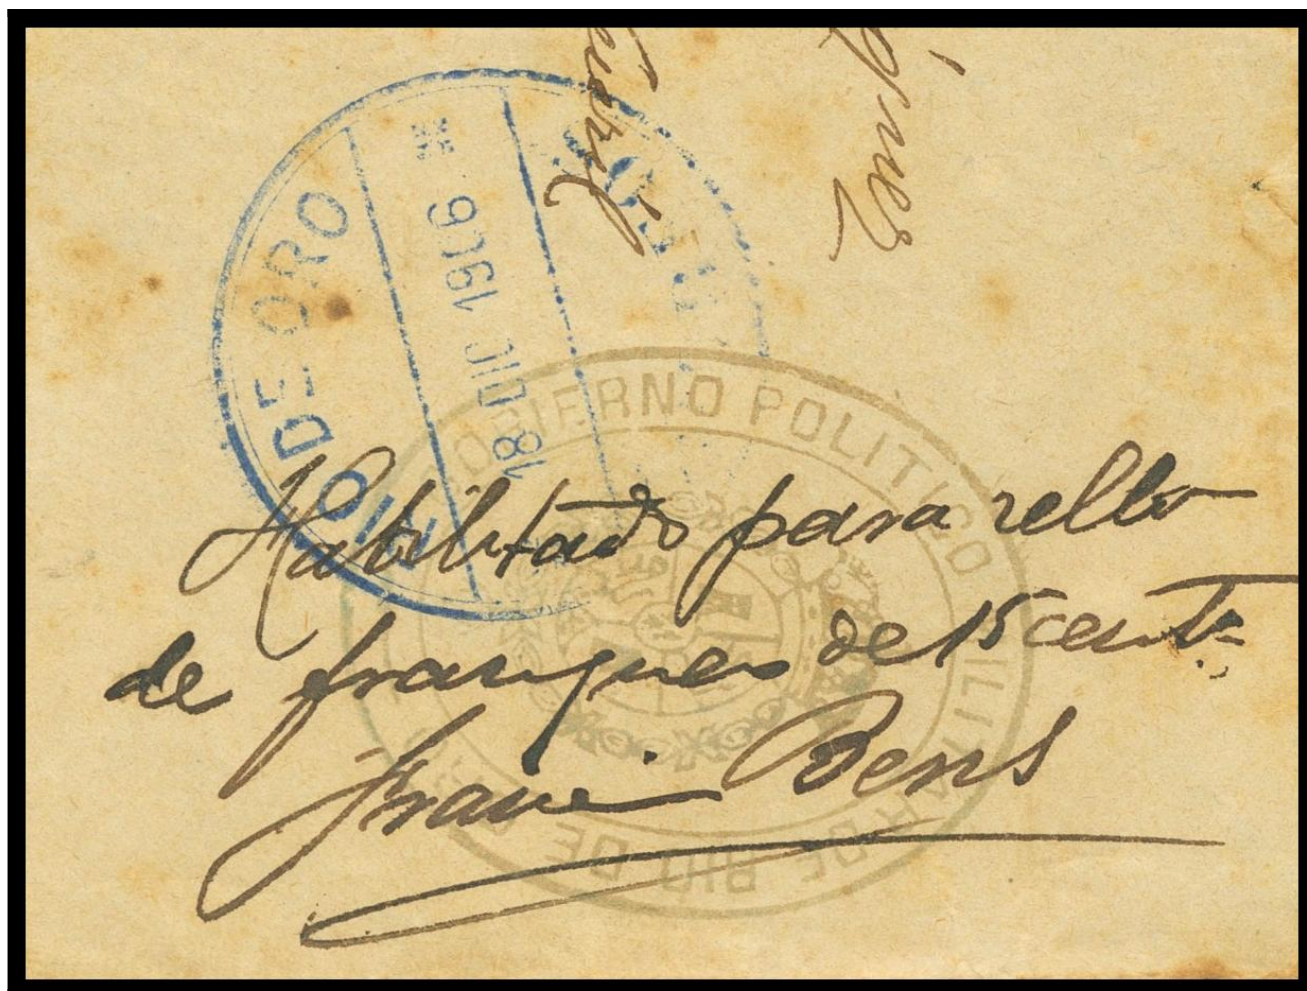 RIO DE ORO
18 DIC 1906
GOBIERNO POLITICO MILITAR DE RIO DE
Habilitado para sello
de franqueo de 15 cent.
Bens